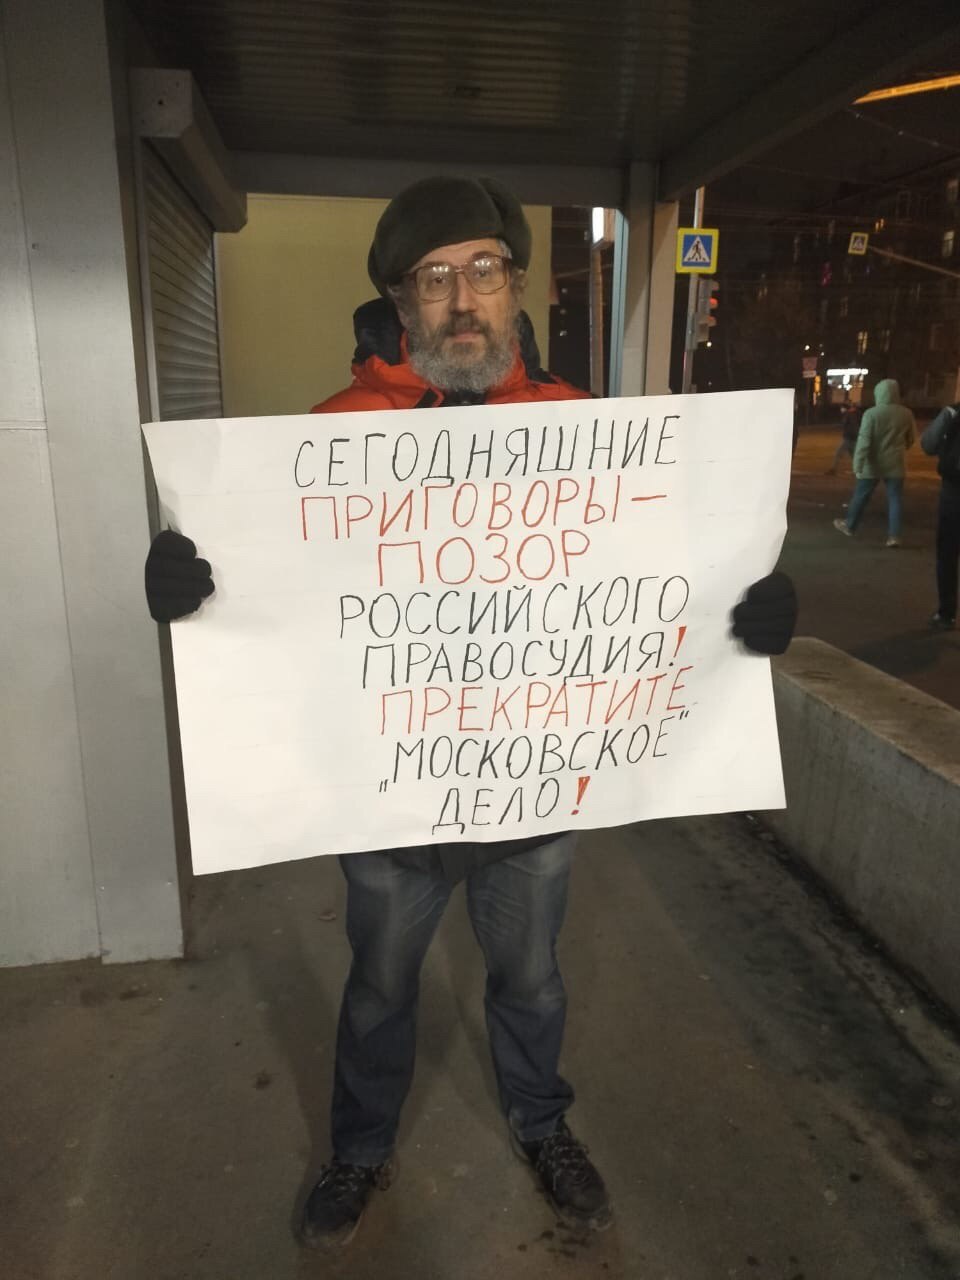 СЕГОДНЯШНИЕ
ПРИГОВОРЫ –
ПОЗОР
РОССИЙСКОГО
ПРАВОСУДИЯ!
ПРЕКРАТИТЕ
„МОСКОВСКОЕ"
ДЕЛО!